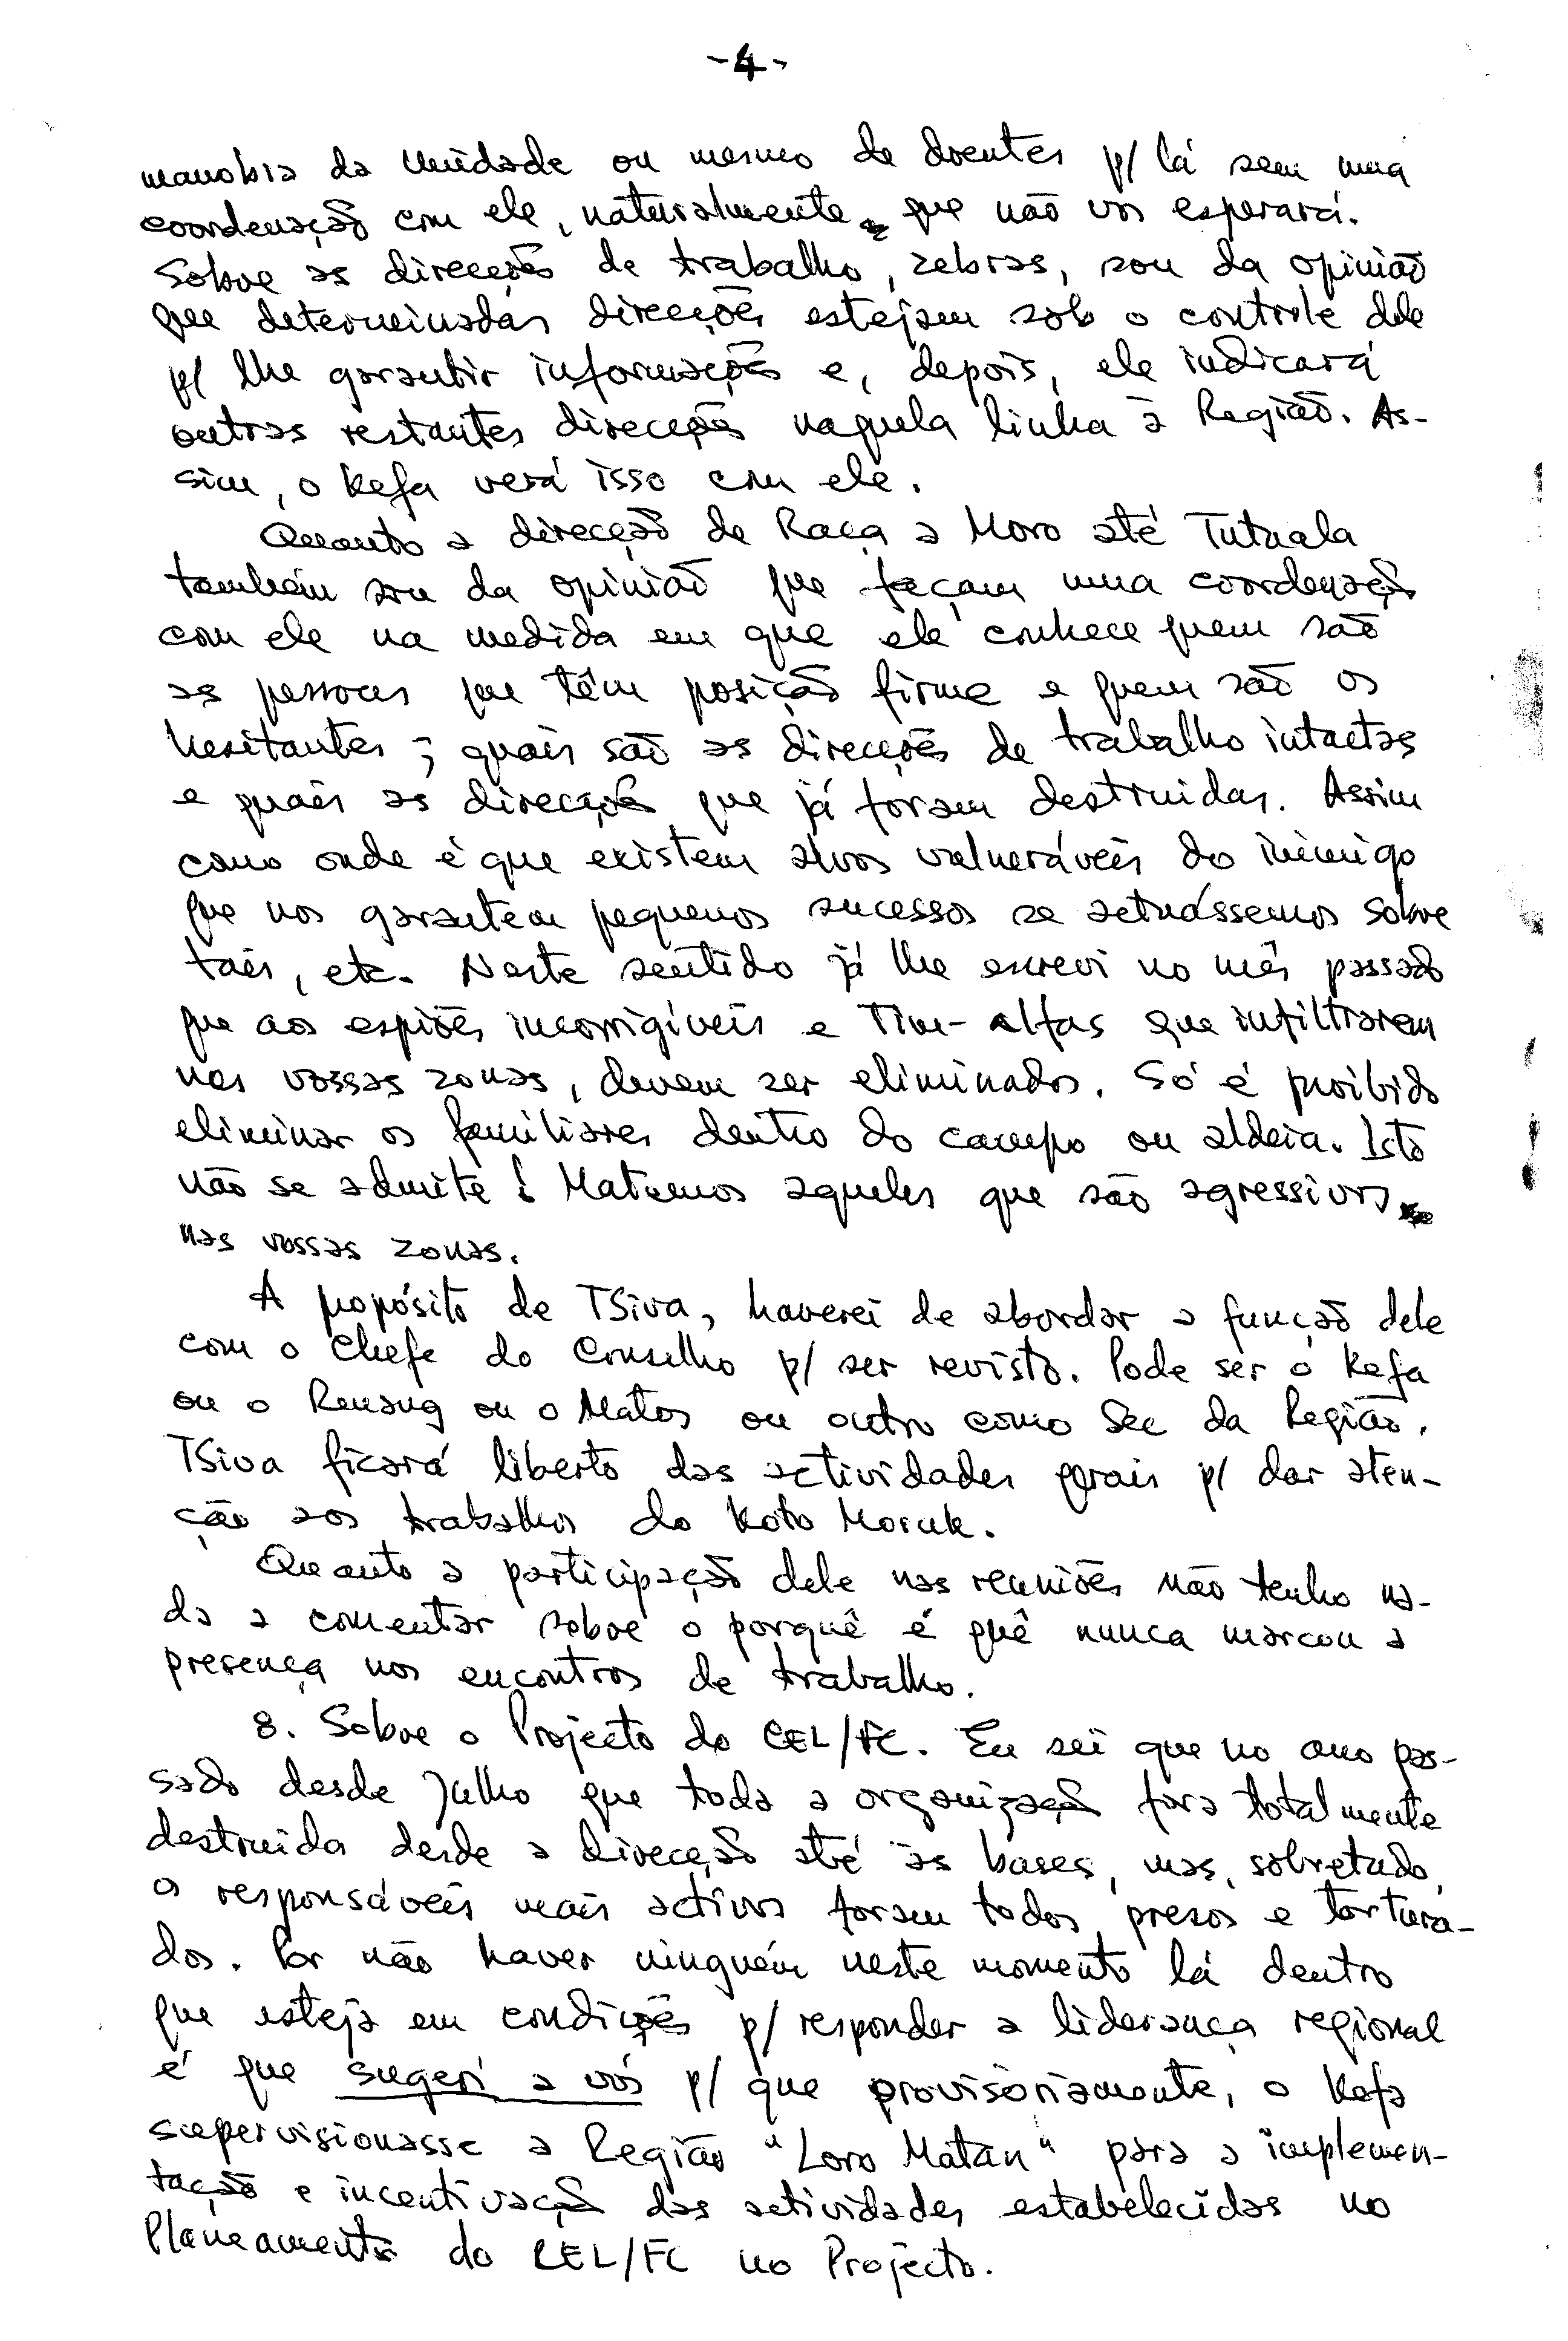 -4-
manobra da Unidade ou mesmo de doentes p/ lá sem uma
coordenação com ele, naturalmente, que não vos esperará.
Sobre as direcções de trabalho, zebras, sou da opinião
que determinadas direcções estejam sob o controle dele
p/ lhe garantir informações e, depois, ele indicará
outras restantes direcções naquela linha à Região. As-
sim, o Kefa verá isso com ele.
Quanto a direcção de Raça a Moro até Tutuala
também sou da opinião que façam uma coordenação
com ele na medida em que ele conhece quem são
as pessoas que têm posição firme e quem são os
hesitantes; quais são as direcções de trabalho intactas
e quais as direcções que já foram destruidas. Assim
como onde é que existem alvos vulneráveis do inimigo
que nos garantem pequenos sucessos se actuássemos sobre
tais, etc. Neste sentido já lhe escrevi no mês passado
que aos espiões incorrigíveis e Tim-Alfas que infiltrarem
nas vossas zonas, devem ser eliminados. Só é proibido
eliminar os familiares dentro do campo ou aldeia. Isto
não se admite! Matemos aqueles que são agressivos
nas vossas zonas.
A propósito de TSiva, haverei de abordar a função dele
com o Chefe do Conselho p/ ser revisto. Pode ser o Kefa
ou o Renang ou o Matos ou outro como Sec da Região.
TSiva ficará liberto das actividades gerais p/ dar aten-
ção aos trabalhos do Koto Moruk.
Quanto a participação dele nas reuniões não tenho na-
da a comentar sobre o porquê é quê nunca marcou a
presença nos encontros de trabalho.
8. Sobre o Projecto do CEL/FC. Eu sei que no ano pas-
sado desde Julho que toda a organização fora totalmente
destruida desde a direcção até às bases, mas, sobretudo,
os responsáveis mais activos foram todos presos e tortura-
dos. Por não haver ninguém neste momento lá dentro
que esteja em condições p/ responder a liderança regional
é que sugeri a vós p/ que provisoriamente, o Kefa
supervisionasse a Região "Loro Matan" para a implemen-
tação e incentivação das actividades estabelecidas no
Planeamento do CEL/FC no Projecto.